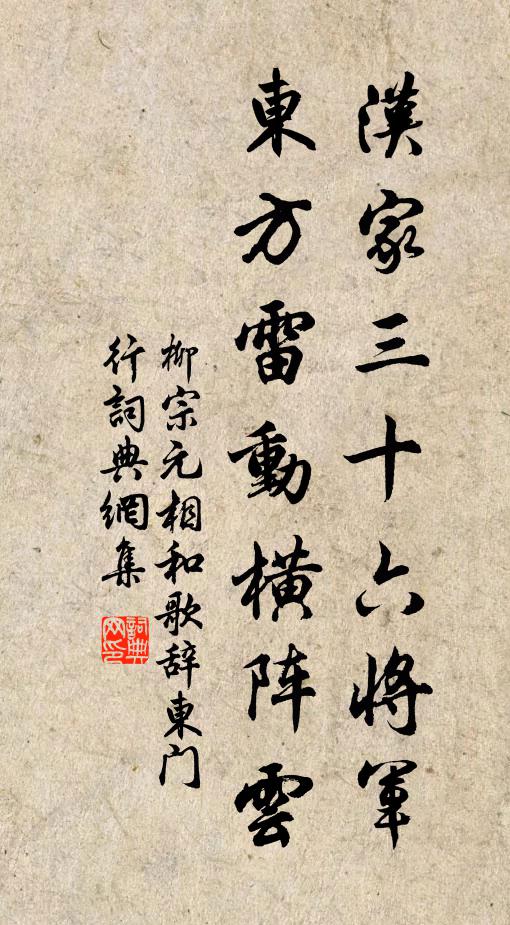 漢家三十六將軍
東方雷動橫阵雲
柳宗元相和歌辞東门
行詞典網集
詞典网印